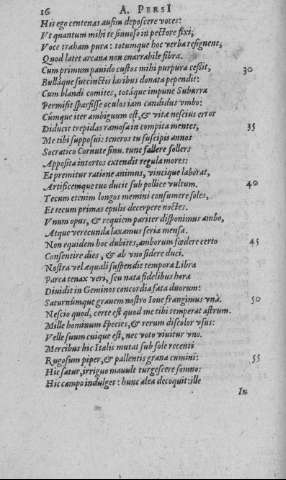 16 A. PERSI
His ego centenas ausim deposcere voces:
Vt quantum mihi te sinuoso in pectore fixi,
Voce traham pura: totumque hoc verba resignent,
Quod latet arcana non enarrabile fibra.
Cum primum pavido custos mihi purpura cessit, 30
Bullaque succinctis laribus donata pependit:
Cum blandi comites, totaque impune Suburra
Permisit sparsisse oculos iam candidus vmbo:
Cumque iter ambiguum est, & vita nescius error
Diducit trepidas ramosa in compita mentes, 35
Me tibi supposui: teneros tu suscipis annos
Socratico Cornute sinu. tunc fallere sollers
Apposita intortos extendit regula mores:
Et premitur ratione animus, vincique laborat,
Artificemque tuo ducit sub pollice vultum. 40
Tecum etenim longos memini consumere soles,
Et tecum primas epulis decerpere noctes.
Vnum opus, & requiem pariter disponimus ambo,
Atque verecunda laxamus seria mensa.
Non equidem hoc dubites, amborum fœdere certo 45
Consentire dies, & ab vno sidere duci.
Nostra vel æquali suspendit tempora Libra
Parca tenax veri, seu nata fidelibus hora
Dividit in Geminos concordia fata duorum:
Saturnumque gravem nostro Ioue frangimus vnà. 50
Nescio quod, certe est quod me tibi temperat astrum.
Mille hominum species, & rerum discolor vsus:
Velle suum cuique est, nec voto vivitur vno.
Mercibus hic Italis mutat sub sole recenti
Rugosum piper, & pallentis grana cumini: 55
Hic satur, irriguo mauult turgescere somno:
Hic campo indulget: hunc alea decoquit: ille
In